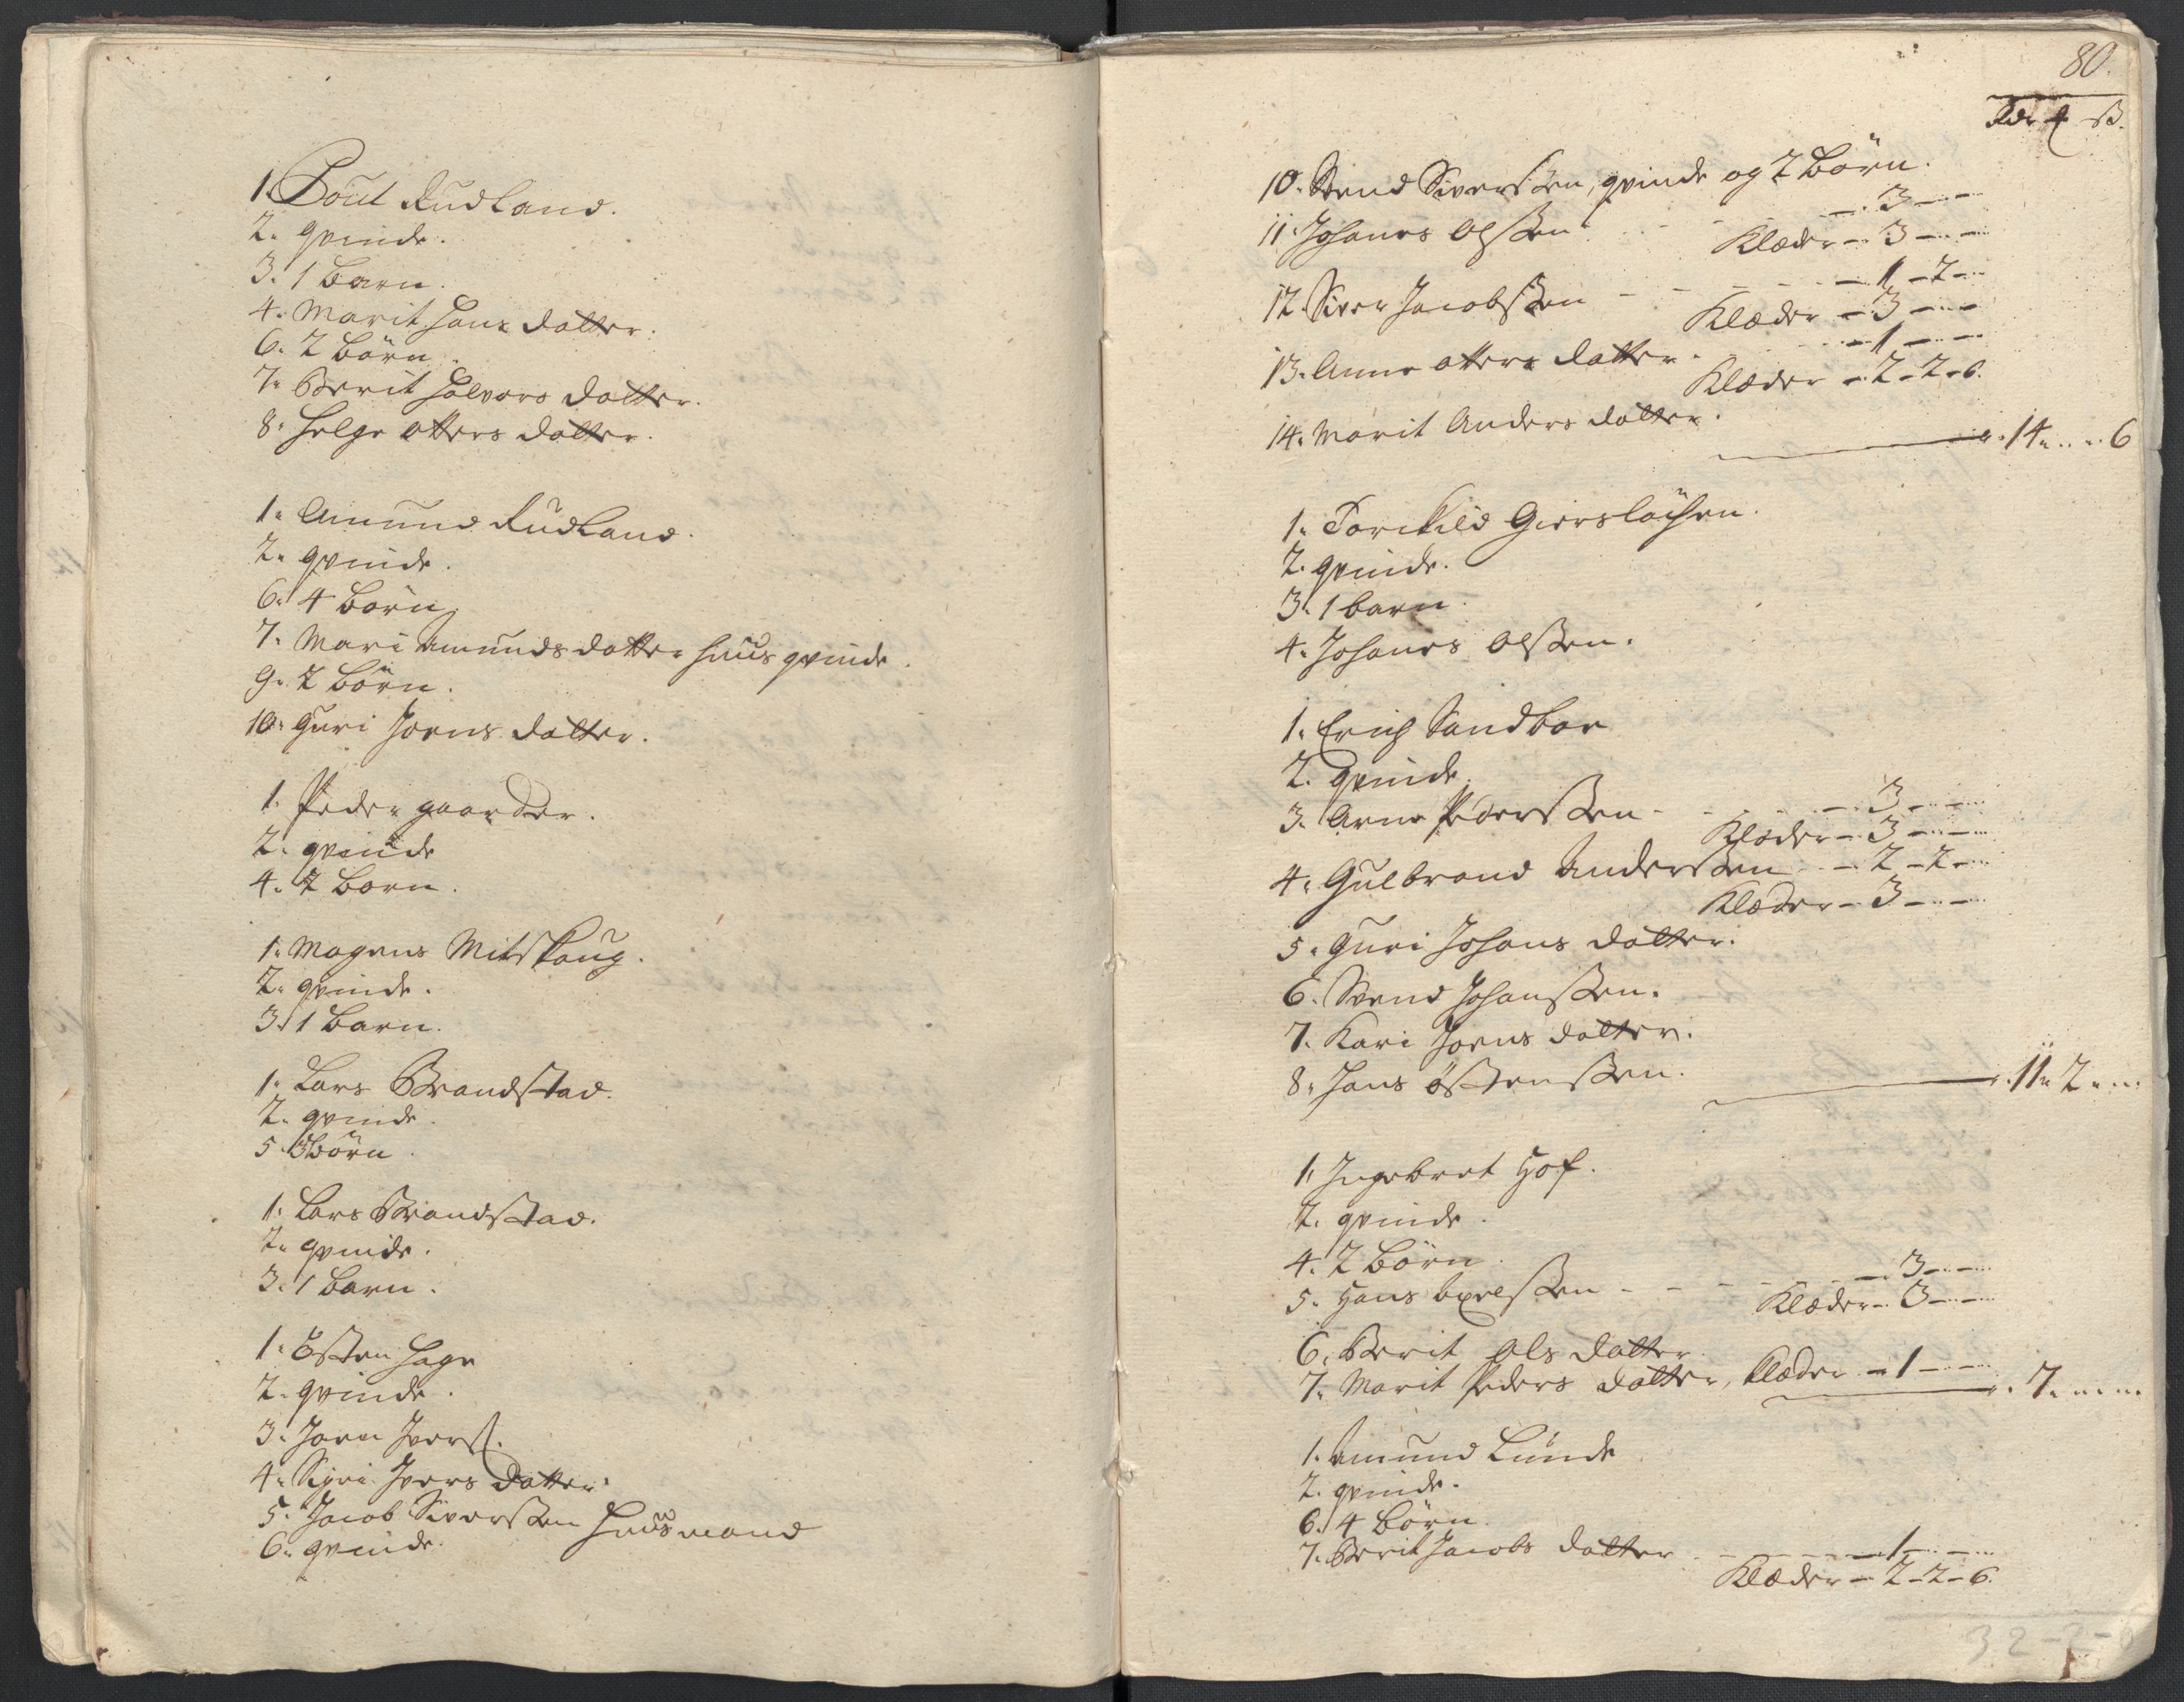 1. Poul Rudland.
2. qvinde.
3. 1 Barn.
4. Marit Hans datter.
6. 2 Börn.
7. Berit Halvors datter.
8. Helge Otters datter.
1. Amund Rudland.
2. qvinde.
6. 4 Börn.
7. Mari Amunds datter huus qvinde.
9. 2 Börn.
10. Guri Joens datter.
1. Peder gaarder.
2. qvinde
4. 2 Born.
1. Mogens Midtskoug.
2. qvinde.
3. 1 Barn.
1. Lars Brandstad.
2. qvinde.
5. 3 Börn.
1. Lars Brandstad.
2. qvinde.
3. 1 Barn.
1. Østen Hage
2. qvinde.
3. Joen Iverss.
4. Sigri Ivers datter.
5. Jacob Siverssen Huusmand
6. qvinde.
80.
Rdr ß.
10. Svend Siversøen, qvinde og 2 Börn.
11. Johanes Olssen - - - 3 - -
Klæder - 3 - -
12. Siver Jacobssen - - - 1 - 2 -
Klæder - 3 - -
13. Anne Otters datter - - 1 - -
Klæder - 2 - 2 - 6.
14. Marit Anders datter.
14 - - 6
1. Torkild Gierslöhen.
2. qvinde.
3. 1 barn.
4. Johanes Olssen.
1. Erich Sandboe
2. qvinde.
3. Arne Pederssen - - - 3 - -
Klæder - 3 - -
4. Gulbrand Anderssen - 2 - 2 -
Klæder - 3 - -
5. Guri Johans datter.
6. Svend Johanssen.
7. Kari Joens datter.
8. Hans Østenssen.
11 - 2 -
1. Ingebret Hof.
2. qvinde.
4. 2 Börn.
5. Hans Axelssen - - - 3 - -
Klæder - 3 - -
6. Berit Ols datter
7. Marit Peders datter, Klæder - 1 - -
7. - -
1. Amund Lunde
2. qvinde.
6. 4 Börn.
7. Berit Jacobs datter - - - 1 - -
Klæder - 2 - 2 - 6.
32 - 2 -